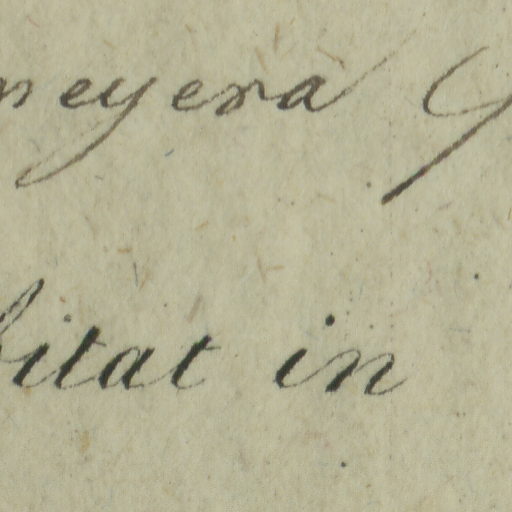 neyera
bitat in